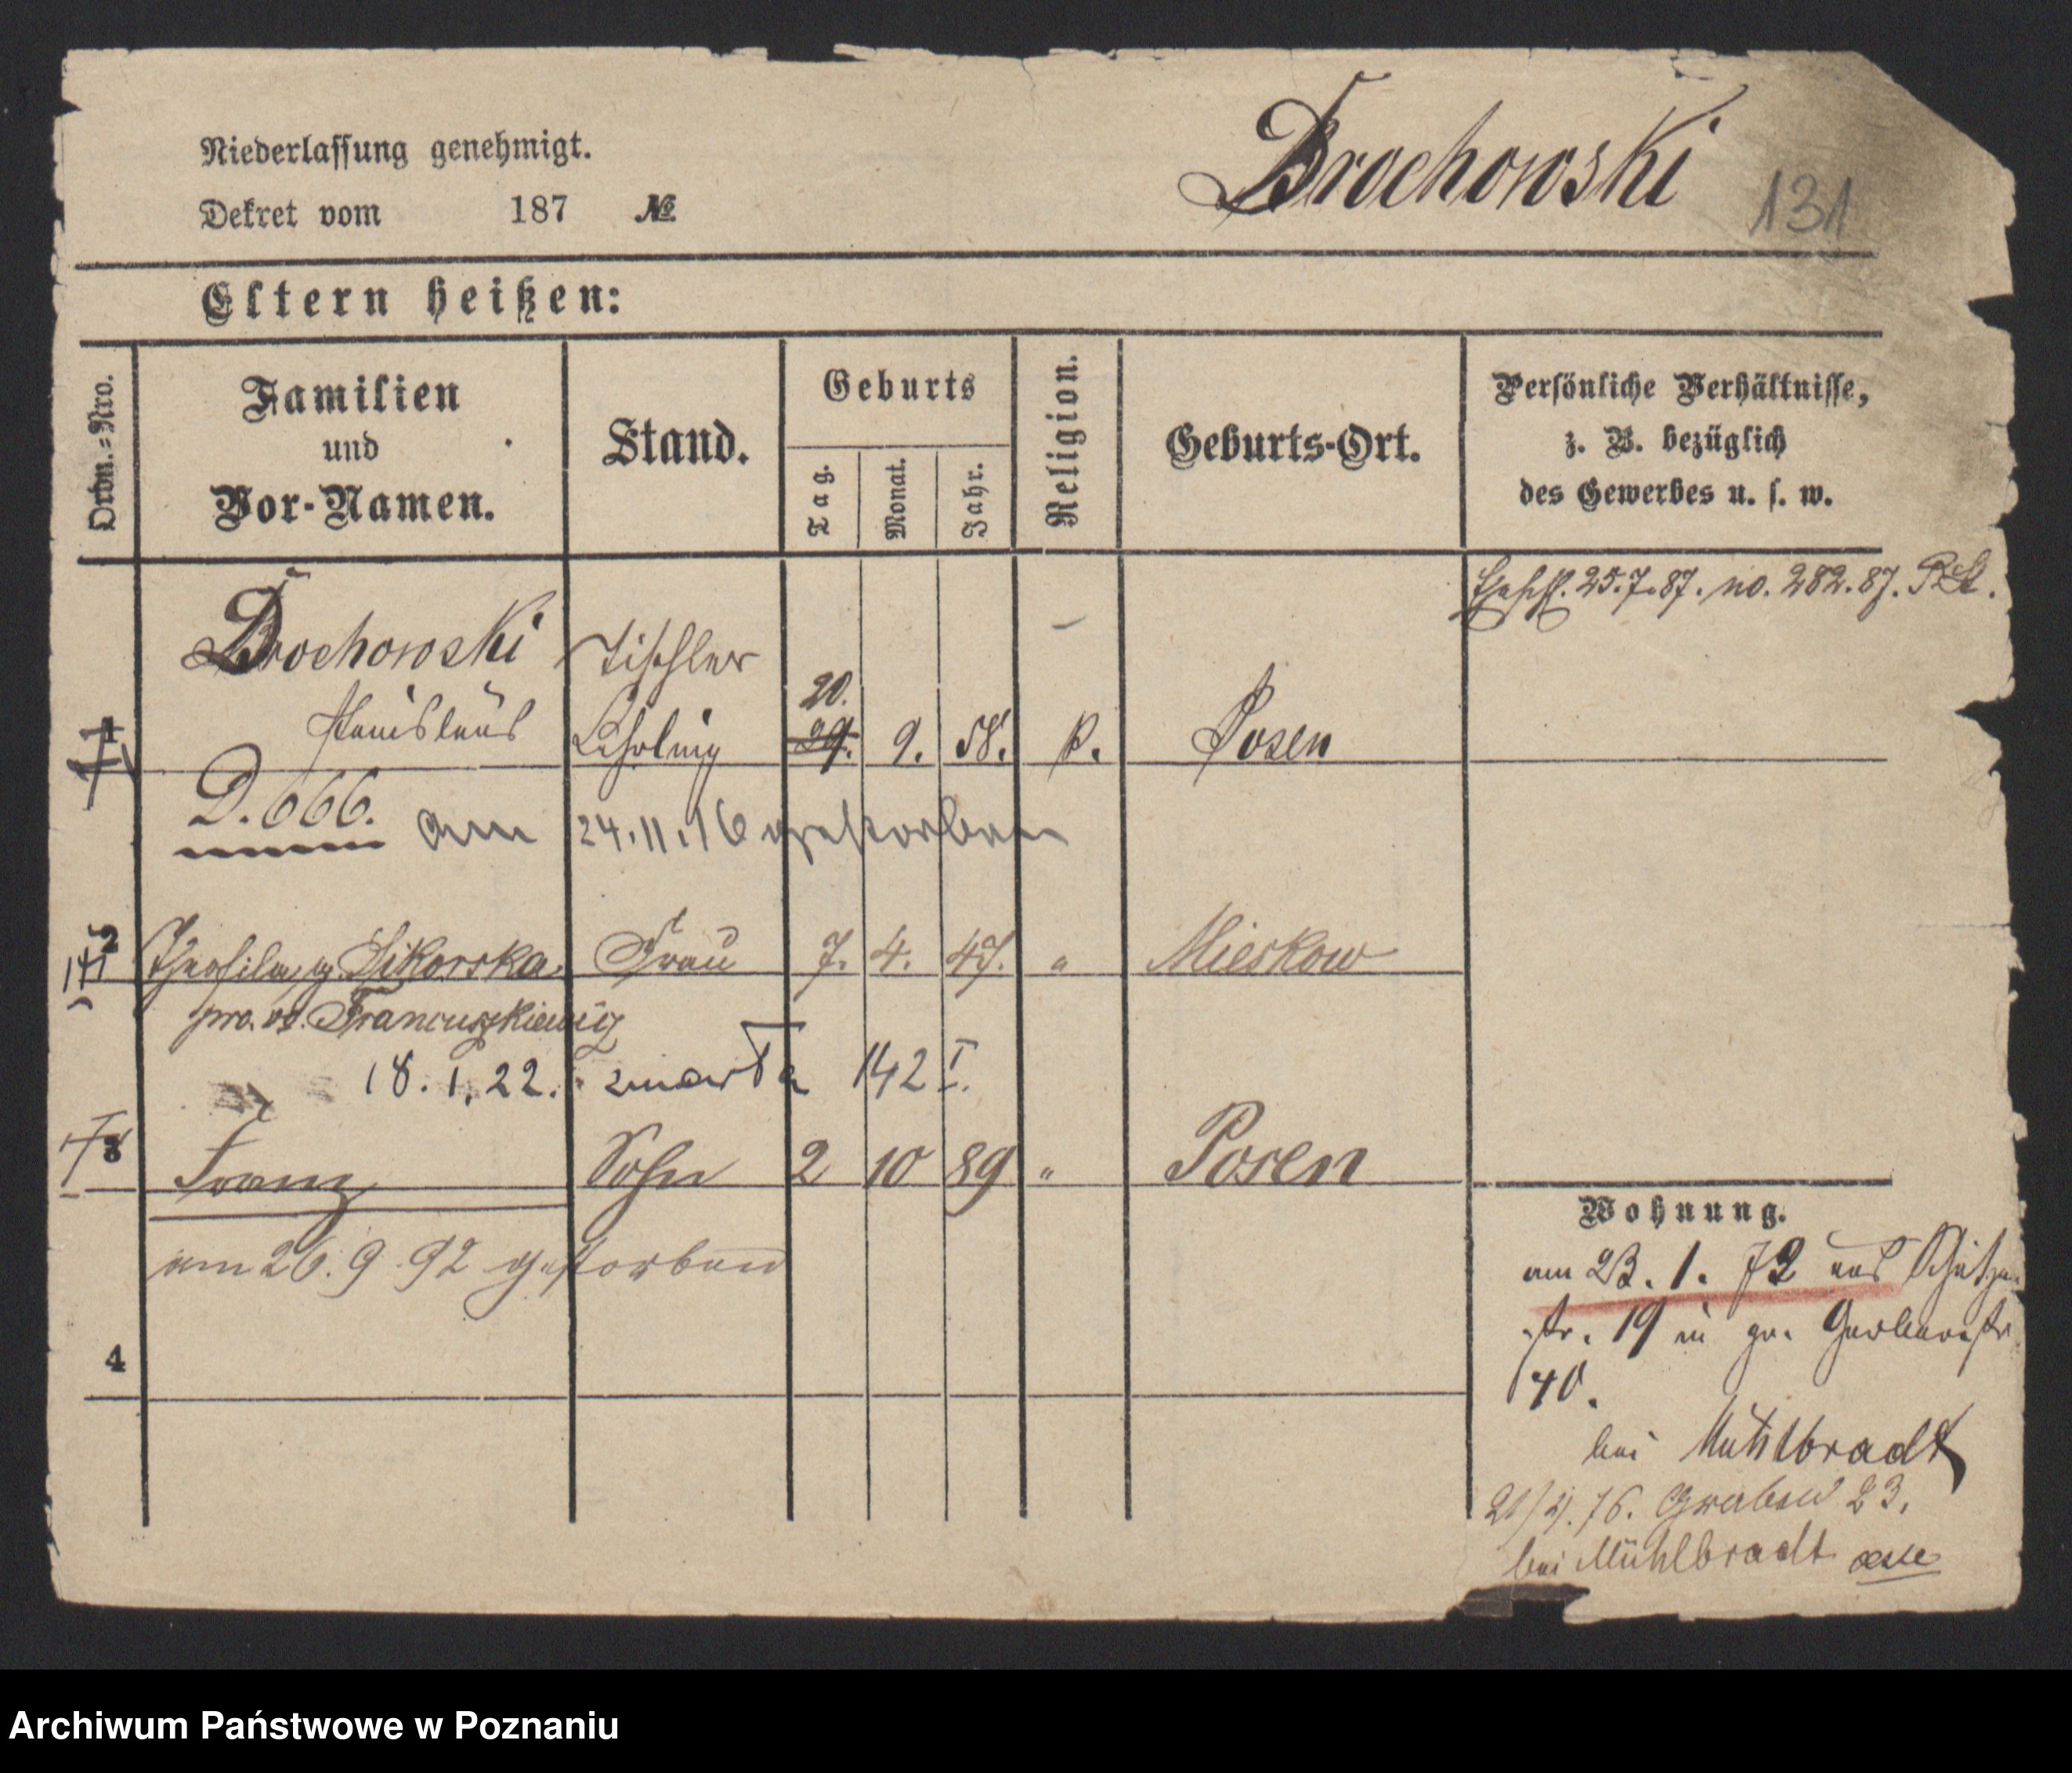 Niederlassung genehmigt.
Dekret vom 187 №
Drochowski 131
Eltern heißen:
Ordn.=Nro.
Familien
und
Vor-Namen.
Stand.
Geburts
Tag.
Monat.
Jahr.
Religion.
Geburts-Ort.
Persönliche Verhältnisse,
z. B. bezüglich
des Gewerbes u. s. w.
25.7.87. no. 282.87.
Drochowski Tischler
20.
1 Stanislaus Lehrling 29. 9. 58. k. Posen
D. 666. am 24.11.16 gestorben
2 Theofila g. Sikorska Frau 7. 4. 47. " Mieskow
pro. vo. Francuszkiewicz
18.1.22. zmarła 142 I.
3 Franz Sohn 2 10 89 " Posen
am 26.9.92 gestorben
4
Wohnung.
am 23. 1. 72 aus Schützen
str. 19 in gr. Gerberstr
40.
bei Mühlbradt
76. Graben 23.
bei Mühlbradt
Archiwum Państwowe w Poznaniu